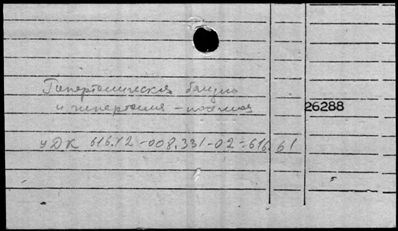 Гипертоническая болезнь
и гипертония - почечная
26288
УДК 616.12-008.331-02:616.61